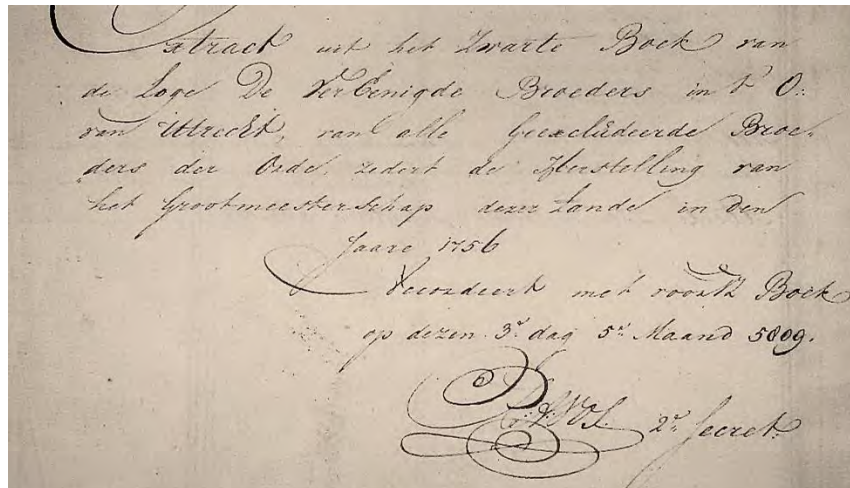 Extract uit het Zwarte Boek van
de Loge De VerEenigde Broeders in t' O:
van Utrecht, van alle Geexcludeerde Broe-
ders der Orde, zedert de Herstelling van
het Grootmeesterschap dezer Lande in den
Jaare 1756
Accordeert met voorsz Boek
op dezen 3e dag 5e Maand 5809.
2e Secret: